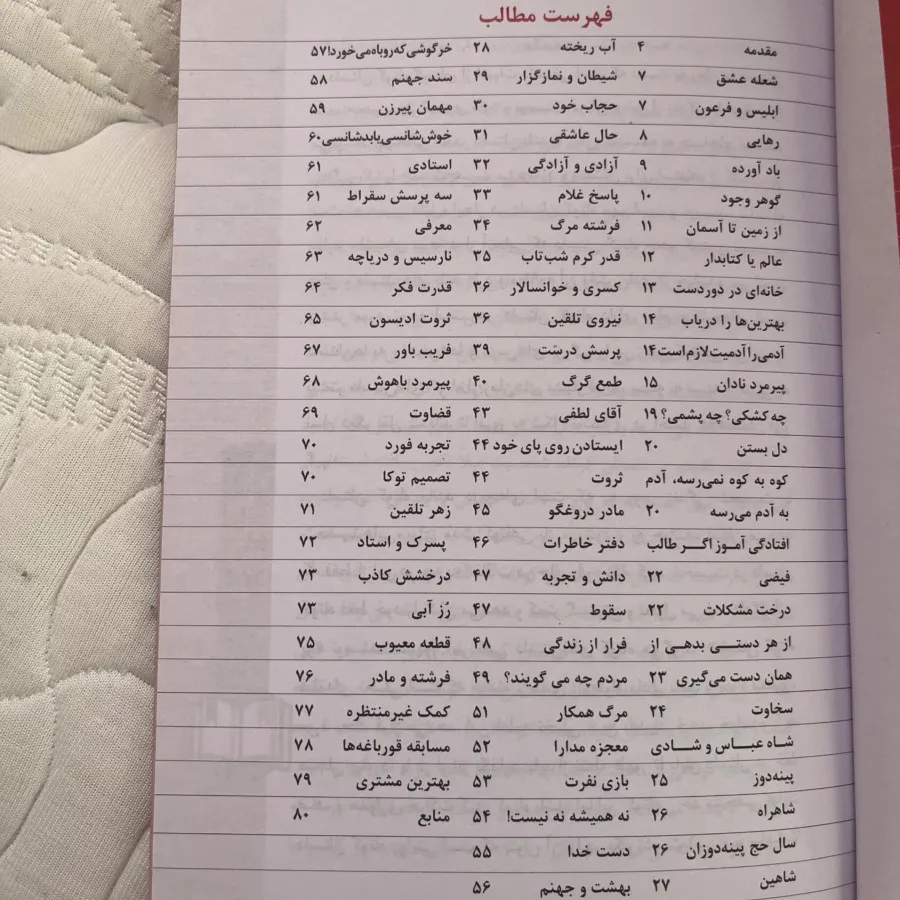 فهرست مطالب
مقدمه ۴
شعله عشق ۷
ابلیس و فرعون ۷
رهایی ۸
باد آورده ۹
گوهر وجود ۱۰
از زمین تا آسمان ۱۱
عالم یا کتابدار ۱۲
خانه‌ای در دوردست ۱۳
بهترین‌ها را دریاب ۱۴
آدمی را آدمیت لازم است ۱۴
پیرمرد نادان ۱۵
چه کشکی؟ چه پشمی؟ ۱۹
دل بستن ۲۰
کوه به کوه نمی‌رسه، آدم
به آدم می‌رسه ۲۰
افتادگی آموز اگر طالب
فیضی ۲۲
درخت مشکلات ۲۲
از هر دستی بدهی از
همان دست می‌گیری ۲۳
سخاوت ۲۴
شاه عباس و شادی
پینه‌دوز ۲۵
شاهراه ۲۶
سال حج پینه‌دوزان ۲۶
شاهین ۲۷
آب ریخته ۲۸
شیطان و نمازگزار ۲۹
حجاب خود ۳۰
حال عاشقی ۳۱
آزادی و آزادگی ۳۲
پاسخ غلام ۳۳
فرشته مرگ ۳۴
قدر کرم شب‌تاب ۳۵
کسری و خوانسالار ۳۶
نیروی تلقین ۳۶
پرسش درست ۳۹
طمع گرگ ۴۰
آقای لطفی ۴۳
ایستادن روی پای خود ۴۴
ثروت ۴۴
مادر دروغگو ۴۵
دفتر خاطرات ۴۶
دانش و تجربه ۴۷
سقوط ۴۷
فرار از زندگی ۴۸
مردم چه می گویند؟ ۴۹
مرگ همکار ۵۱
معجزه مدارا ۵۲
بازی نفرت ۵۳
نه همیشه نه نیست! ۵۴
دست خدا ۵۵
بهشت و جهنم ۵۶
خرگوشی که روباه می‌خورد! ۵۷
سند جهنم ۵۸
مهمان پیرزن ۵۹
خوش‌شانسی یا بدشانسی ۶۰
استادی ۶۱
سه پرسش سقراط ۶۱
معرفی ۶۲
نارسیس و دریاچه ۶۳
قدرت فکر ۶۴
ثروت ادیسون ۶۵
فریب باور ۶۷
پیرمرد باهوش ۶۸
قضاوت ۶۹
تجربه فورد ۷۰
تصمیم توکا ۷۰
زهر تلقین ۷۱
پسرک و استاد ۷۲
درخشش کاذب ۷۳
رُز آبی ۷۳
قطعه معیوب ۷۵
فرشته و مادر ۷۶
کمک غیرمنتظره ۷۷
مسابقه قورباغه‌ها ۷۸
بهترین مشتری ۷۹
منابع ۸۰